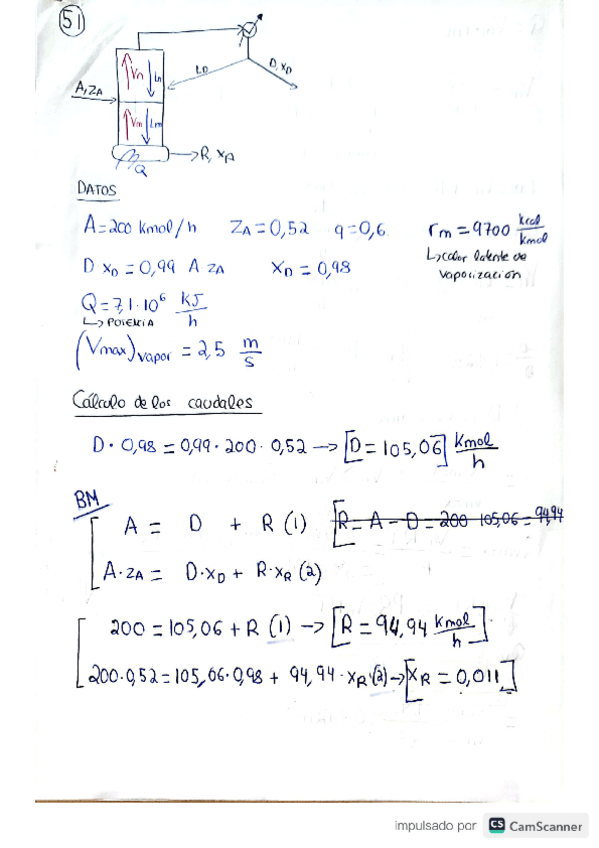 51
Vn Ln
LD
D, XD
A, ZA
Vm Lm
R, XR
Q
DATOS
A=200 kmol/h ZA=0,52 q=0,6 rm=9700 kcal/kmol
↳calor latente de
vaporización
D XD=0,99 A ZA XD=0,98
Q=7,1·10⁶ kJ/h
↳POTENCIA
(Vmax)vapor = 2,5 m/s
Cálculo de los caudales
D· 0,98 = 0,99·200·0,52 → [D=105,06] Kmol/h
BM
A = D + R (1) [R=A-D=200-105,06=94,94
A·ZA= D·XD+ R·XR (2)
200 = 105,06+R (1) → [R=94,94 Kmol/h]
200·0,52=105,06·0,98 + 94,94·XR (2)→[XR=0,011]
impulsado por CS CamScanner